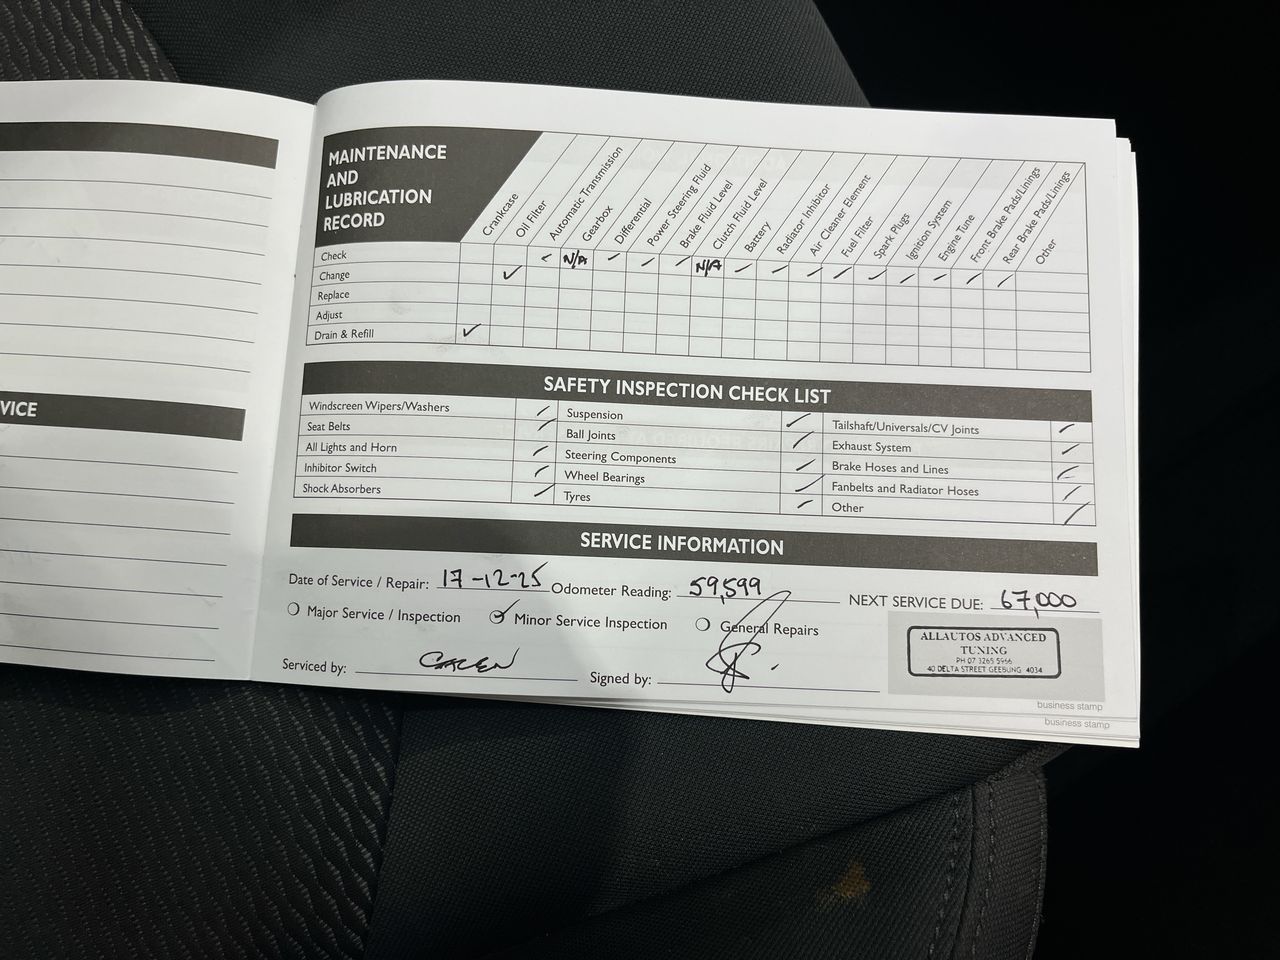 VICE
MAINTENANCE
AND
LUBRICATION
RECORD
Crankcase
Oil Filter
Automatic Transmission
Gearbox
Differential
Power Steering Fluid
Brake Fluid Level
Clutch Fluid Level
Battery
Radiator Inhibitor
Air Cleaner Element
Fuel Filter
Spark Plugs
Ignition System
Engine Tune
Front Brake Pads/Linings
Rear Brake Pads/Linings
Other
Check N/A N/A
Change
Replace
Adjust
Drain & Refill
SAFETY INSPECTION CHECK LIST
Windscreen Wipers/Washers
Seat Belts
All Lights and Horn
Inhibitor Switch
Shock Absorbers
Suspension
Ball Joints
Steering Components
Wheel Bearings
Tyres
Tailshaft/Universals/CV Joints
Exhaust System
Brake Hoses and Lines
Fanbelts and Radiator Hoses
Other
SERVICE INFORMATION
Date of Service / Repair: 17-12-25 Odometer Reading: 59,599 NEXT SERVICE DUE: 67,000
Major Service / Inspection Minor Service Inspection General Repairs
Serviced by: Signed by:
ALLAUTOS ADVANCED
TUNING
PH 07 3265 5966
40 DELTA STREET GEEBUNG 4034
business stamp
business stamp